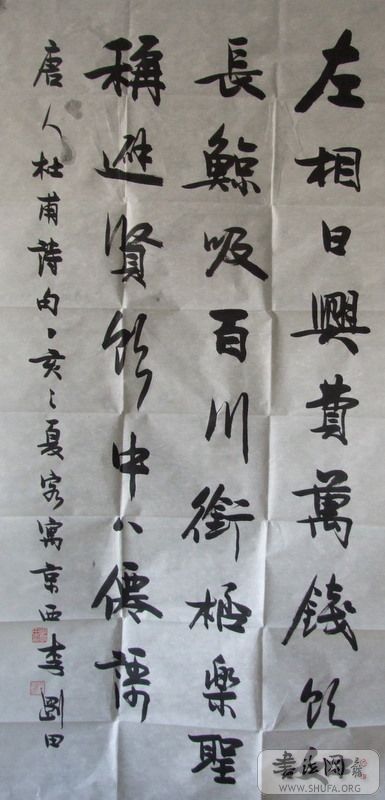 左相日興費萬錢飲
長鯨吸百川銜桮樂聖
稱避賢飲中八僊謌
唐人杜甫詩句丁亥之夏客寓京西李劉田
書法網
WWW.SHUFA.ORG